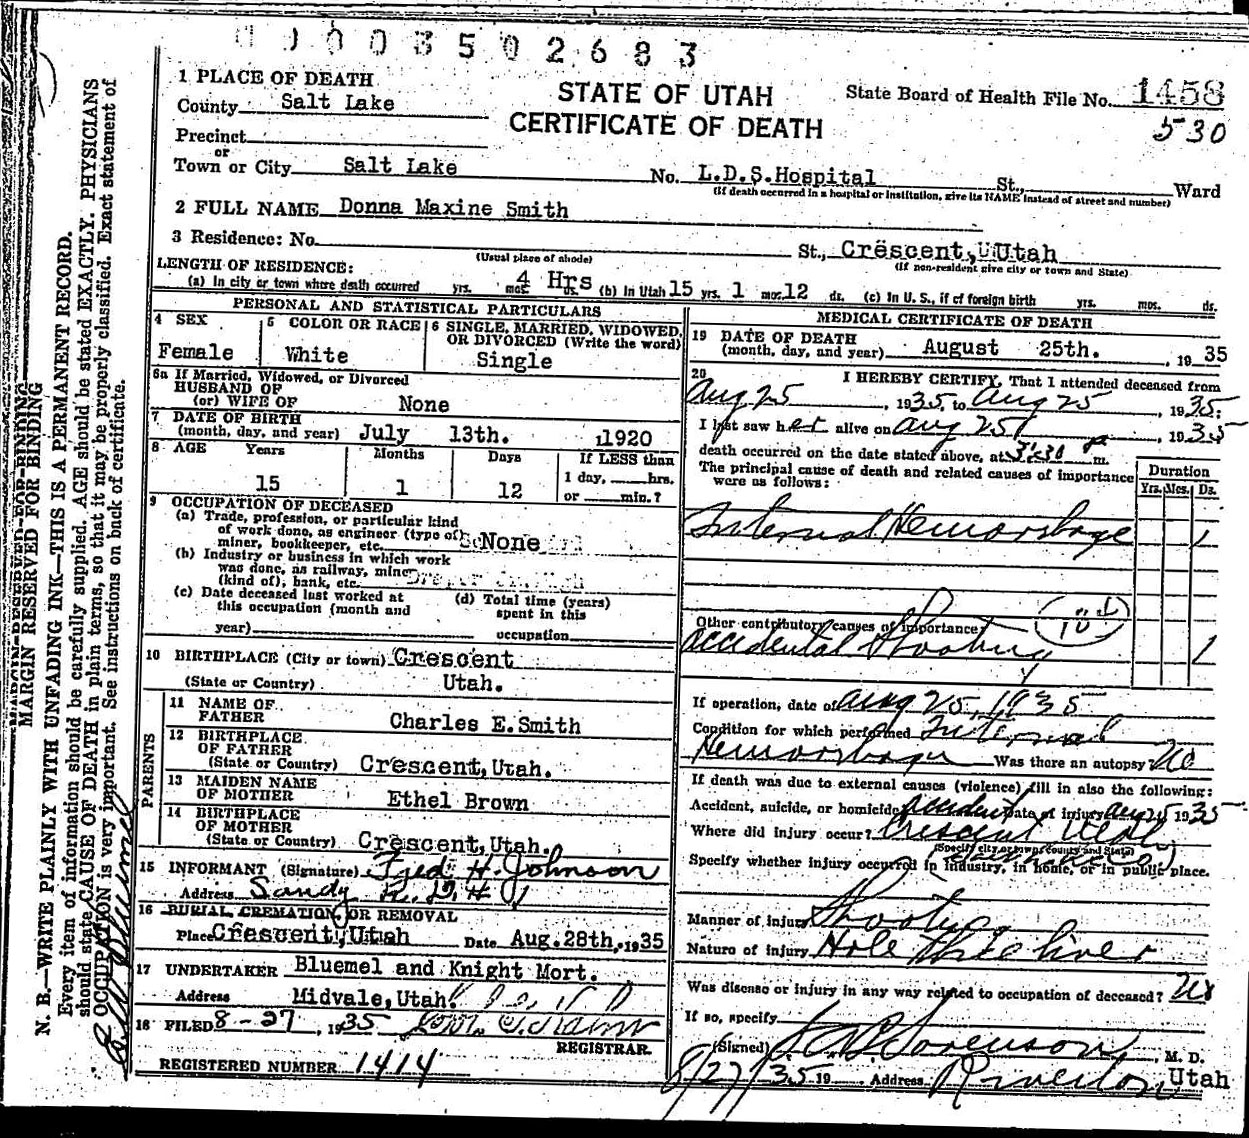 0 0 0 0 3 5 0 2 6 8 3
1 PLACE OF DEATH
County Salt Lake
STATE OF UTAH
CERTIFICATE OF DEATH
State Board of Health File No. 1458
530
Precinct
or
Town or City Salt Lake No. L.D.S.Hospital St., Ward
(If death occurred in a hospital or institution, give its NAME instead of street and number)
2 FULL NAME Donna Maxine Smith
3 Residence: No. St., Crescent, Utah
(Usual place of abode) (If non-resident give city or town and State)
LENGTH OF RESIDENCE:
(a) In city or town where death occurred yrs. mos. 4 Hrs ds. (b) In Utah 15 yrs. 1 mos. 12 ds. (c) In U. S., if of foreign birth yrs. mos. ds.
PERSONAL AND STATISTICAL PARTICULARS
4 SEX
Female
5 COLOR OR RACE
White
6 SINGLE, MARRIED, WIDOWED,
OR DIVORCED (Write the word)
Single
6a If Married, Widowed, or Divorced
HUSBAND OF
(or) WIFE OF None
7 DATE OF BIRTH
(month, day, and year) July 13th. 1920
8 AGE Years Months Days If LESS than
1 day, hrs.
15 1 12 or min.?
9 OCCUPATION OF DECEASED
(a) Trade, profession, or particular kind
of work done, as engineer (type of)
miner, bookkeeper, etc. None
(b) Industry or business in which work
was done, as railway, mine
(kind of), bank, etc.
(c) Date deceased last worked at
this occupation (month and
year)
(d) Total time (years)
spent in this
occupation
10 BIRTHPLACE (City or town) Crescent
(State or Country) Utah.
PARENTS
11 NAME OF
FATHER Charles E.Smith
12 BIRTHPLACE
OF FATHER
(State or Country) Crescent,Utah.
13 MAIDEN NAME
OF MOTHER Ethel Brown
14 BIRTHPLACE
OF MOTHER
(State or Country) Crescent,Utah.
15 INFORMANT (Signature) Fred H. Johnson
Address Sandy R.D.#1
16 BURIAL, CREMATION, OR REMOVAL
Place Crescent, Utah Date Aug.28th, 1935
17 UNDERTAKER Bluemel and Knight Mort.
Address Midvale,Utah.
18 FILED 8-27, 1935
REGISTRAR.
REGISTERED NUMBER 1414
MEDICAL CERTIFICATE OF DEATH
19 DATE OF DEATH
(month, day, and year) August 25th. , 1935
20 I HEREBY CERTIFY, That I attended deceased from
Aug 25, 1935, to Aug 25, 1935:
I last saw her alive on Aug 25, 1935
death occurred on the date stated above, at 5:30 p m.
The principal cause of death and related causes of importance
were as follows:
Duration
Yrs. Mos. Ds.
Internal Hemorrhage 1
Other contributory causes of importance
Accidental Shooting 1
If operation, date of Aug 25, 1935
Condition for which performed Internal
Hemorrhage Was there an autopsy? No
If death was due to external causes (violence) fill in also the following:
Accident, suicide, or homicide accident Date of injury Aug 25 1935
Where did injury occur? Crescent Utah
(Specify city or town, county and State)
Specify whether injury occurred in industry, in home, or in public place.
Manner of injury Shooting
Nature of injury Hole thro liver
Was disease or injury in any way related to occupation of deceased? No
If so, specify
(Signed) Sorenson, M. D.
8/27/35 19 Address Riverton, Utah
MARGIN RESERVED FOR BINDING
N. B.—WRITE PLAINLY WITH UNFADING INK—THIS IS A PERMANENT RECORD.
Every item of information should be carefully supplied. AGE should be stated EXACTLY. PHYSICIANS
should state CAUSE OF DEATH in plain terms, so that it may be properly classified. Exact statement of
OCCUPATION is very important. See instructions on back of certificate.